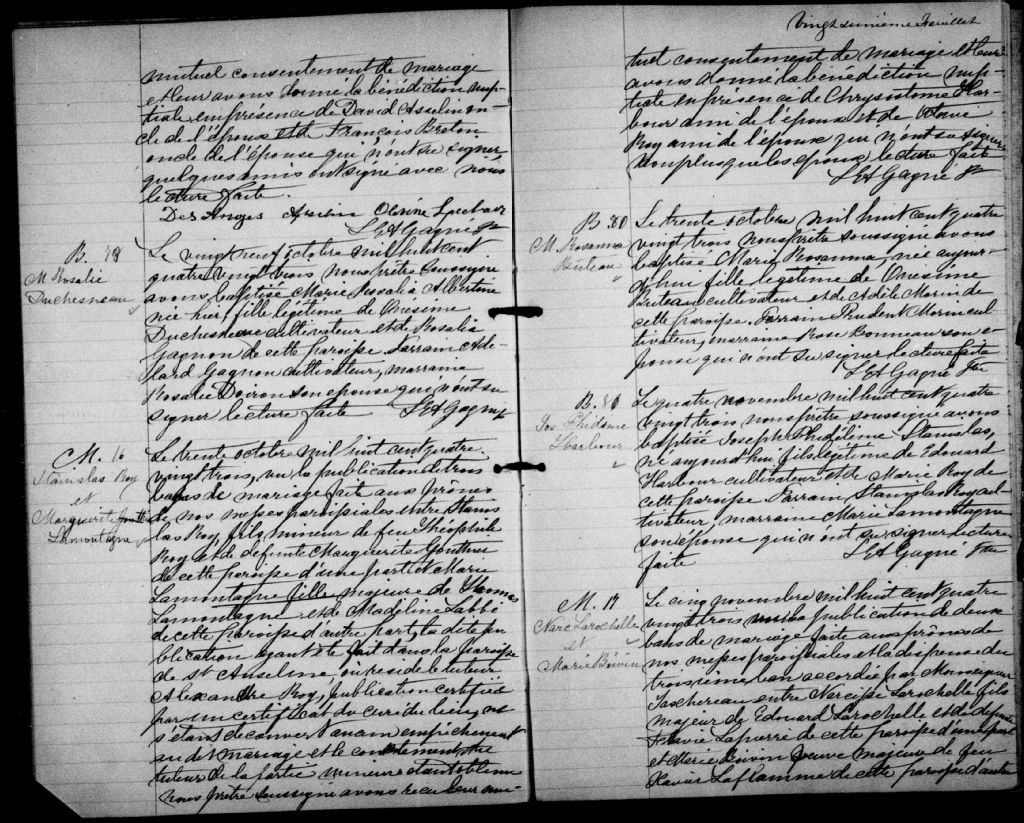 mutuel consentement de mariage
et leur avons donné la bénédiction nup-
tiale en présence de David Asselin on-
cle de l'époux et de François Breton
oncle de l'épouse qui n'ont su signer
quelques amis ont signé avec nous
lecture faite.
Des Anges Asselin
LEAGagné Ptre
B. 79
M Rosalie
Duchesneau
Le vingt neuf octobre mil huit cent
quatre vingt trois nous prêtre soussigné
avons baptisée Marie Rosalie Albertine
née hier, fille légitime de Onésime
Duchesneau cultivateur et de Rosalie
Gagnon de cette paroisse. Parrain Adé-
lard Gagnon cultivateur, marraine
Rosalie Doiron son épouse qui n'ont su
signer lecture faite LEAGagné Ptre
M. 16
Stanislas Roy
et
Marguerite
Lamontagne
Le trente octobre mil huit cent quatre
vingt trois, vu la publication de trois
bans de mariage faite aux prônes
de nos messes paroissiales entre Stanis
las Roy, fils mineur de feu Théophile
Roy et de défunte Marguerite Gonthier
de cette paroisse d'une part et Marie
Lamontagne fille majeure de Thomas
Lamontagne et de Madeleine Labbé
de cette paroisse d'autre part, la dite pu
blication ayant été fait dans la paroisse
de St Anselme, où réside le tuteur
Alexandre Roy, publication certifiée
par un certificat du curé du lieu, ne
s'étant découvert aucun empêchement
au dit mariage et le consentement du
tuteur de la partie mineure étant obtenu
nous prêtre soussigné avons reçu leur mu-
Vingt unième Feuillet
tuel consentement de mariage et leur
avons donné la bénédiction nup-
tiale en présence de Chrysostome Har-
bour ami de l'époux et de Flavie
Roy ami de l'épouse qui n'ont su signer
non plus que les époux lecture faite
LEAGagné Ptre
B. 80
M. Rosanna
Buteau
Le trente octobre mil huit cent quatre
vingt trois nous prêtre soussigné avons
baptisé Marie Rosanna, née aujour-
d'hui fille légitime de Onésime
Buteau cultivateur et de Adèle Morin de
cette paroisse. Parrain Prudent Morin cul
tivateur, marraine Rose Bonneau son é-
pouse qui n'ont su signer lecture faite
LEAGagné Ptre
B. 81
Jos Phidème
Harbour
Le quatre novembre mil huit cent quatre
vingt trois nous prêtre soussigné avons
baptisé Joseph Stanislas,
né aujourd'hui fils légitime de Edouard
Harbour cultivateur et de Marie Roy de
cette paroisse Parrain Stanislas Roy cul-
tivateur, marraine Marie Lamontagne
son épouse qui n'ont su signer lecture
faite LEAGagné Ptre
M. 17
Narc Larochelle
et
Marie Boivin
Le cinq novembre mil huit cent quatre
vingt trois vu la publication de deux
bans de mariage faite aux prônes de
nos messes paroissiales et la dispense du
troisième ban accordée par Monseigneur
Taschereau entre Narcisse Larochelle fils
majeur de Edouard Larochelle et de défunte
Flavie Lapierre de cette paroisse d'une part
et Marie Boivin veuve majeure de feu
Xavier Laflamme de cette paroisse d'autre